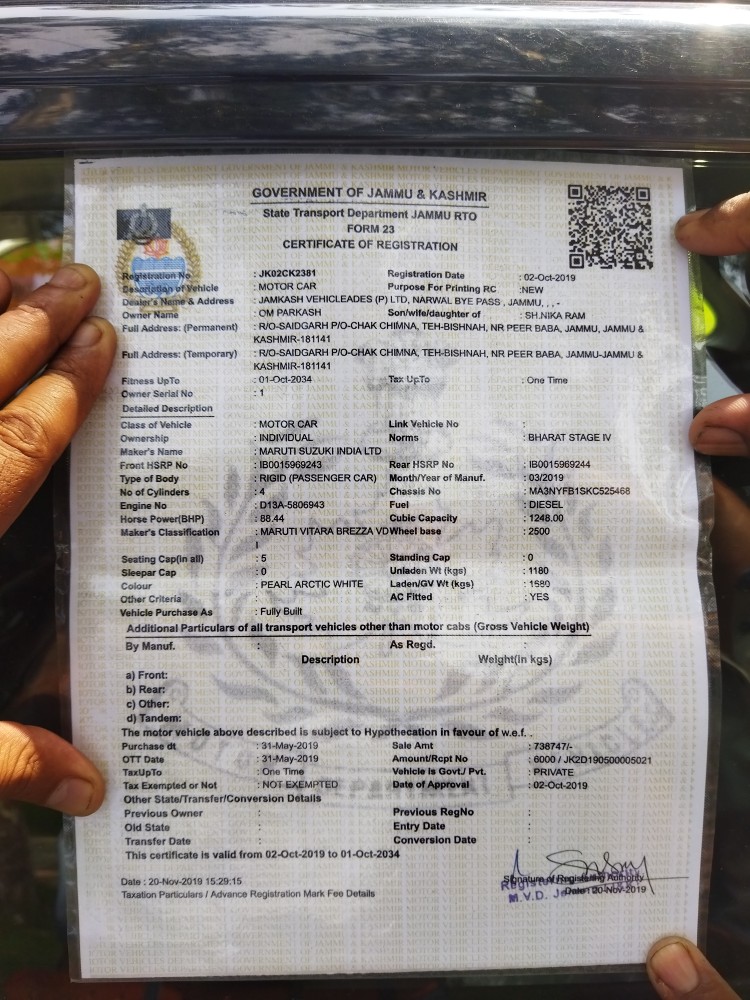 GOVERNMENT OF JAMMU & KASHMIR
State Transport Department JAMMU RTO
FORM 23
CERTIFICATE OF REGISTRATION
Registration No : JK02CK2381 Registration Date : 02-Oct-2019
Description of Vehicle : MOTOR CAR Purpose For Printing RC :NEW
Dealer's Name & Address : JAMKASH VEHICLEADES (P) LTD, NARWAL BYE PASS , JAMMU, , , -
Owner Name : OM PARKASH Son/wife/daughter of : SH.NIKA RAM
Full Address: (Permanent) : R/O-SAIDGARH P/O-CHAK CHIMNA, TEH-BISHNAH, NR PEER BABA, JAMMU, JAMMU &
KASHMIR-181141
Full Address: (Temporary) : R/O-SAIDGARH P/O-CHAK CHIMNA, TEH-BISHNAH, NR PEER BABA, JAMMU-JAMMU &
KASHMIR-181141
Fitness UpTo : 01-Oct-2034 Tax UpTo : One Time
Owner Serial No : 1
Detailed Description
Class of Vehicle : MOTOR CAR Link Vehicle No :
Ownership : INDIVIDUAL Norms : BHARAT STAGE IV
Maker's Name : MARUTI SUZUKI INDIA LTD
Front HSRP No : IB0015969243 Rear HSRP No : IB0015969244
Type of Body : RIGID (PASSENGER CAR) Month/Year of Manuf. : 03/2019
No of Cylinders : 4 Chassis No : MA3NYFB1SKC525468
Engine No : D13A-5806943 Fuel : DIESEL
Horse Power(BHP) : 88.44 Cubic Capacity : 1248.00
Maker's Classification : MARUTI VITARA BREZZA VD Wheel base : 2500
I
Seating Cap(in all) : 5 Standing Cap : 0
Sleepar Cap : 0 Unladen Wt (kgs) : 1180
Colour : PEARL ARCTIC WHITE Laden/GV Wt (kgs) : 1680
Other Criteria : AC Fitted : YES
Vehicle Purchase As : Fully Built
Additional Particulars of all transport vehicles other than motor cabs (Gross Vehicle Weight)
By Manuf. : As Regd. :
Description Weight(in kgs)
a) Front:
b) Rear:
c) Other:
d) Tandem:
The motor vehicle above described is subject to Hypothecation in favour of w.e.f. .
Purchase dt : 31-May-2019 Sale Amt : 738747/-
OTT Date : 31-May-2019 Amount/Rcpt No : 6000 / JK2D190500005021
TaxUpTo : One Time Vehicle is Govt./ Pvt. : PRIVATE
Tax Exempted or Not : NOT EXEMPTED Date of Approval : 02-Oct-2019
Other State/Transfer/Conversion Details
Previous Owner : Previous RegNo :
Old State : Entry Date :
Transfer Date : Conversion Date :
This certificate is valid from 02-Oct-2019 to 01-Oct-2034
Date : 20-Nov-2019 15:29:15
Taxation Particulars / Advance Registration Mark Fee Details
Signature of Registering Authority
Date : 20-Nov-2019
M.V.D.